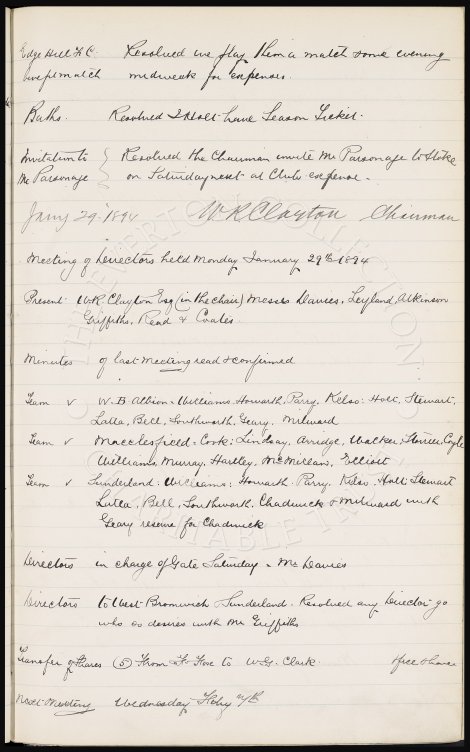 Edge Hill F.C. Resolved we play them a match some evening
benefit match midweek for expenses.
Baths. Resolved J Holt have Season Ticket.
Invitation to Resolved the Chairman invite Mr Parsonage to Stoke
Mr Parsonage on Saturday next at Clubs expense.
Jany 29. 1894 W R Clayton Chairman
Meeting of Directors held Monday January 29th 1894
Present W R Clayton Esq (in the chair) Messrs Davies, Leyland, Atkinson
Griffiths, Read & Coates.
Minutes of last Meeting read & confirmed
Team v W. B. Albion = Williams, Howarth, Parry, Kelso: Holt, Stewart,
Latta, Bell, Southworth, Geary, Milward
Team v Macclesfield = Cook: Lindsay, Arridge, Walker, Storrier, Coyle
Williams, Murray, Hartley, McMillan, Elliott
Team v Sunderland. Williams: Howarth, Parry, Kelso, Holt, Stewart
Latta, Bell, Southworth, Chadwick & Milward with
Geary reserve for Chadwick
Directors in charge of Gate Saturday = Mr Davies
Directors to West Bromwich & Sunderland. Resolved any Director go
who so desires with Mr Griffiths
Transfer of Shares (5) From to W. G. Clark
Next Meeting Wednesday Feby
THE EVERTON COLLECTION
CHARITABLE TRUST